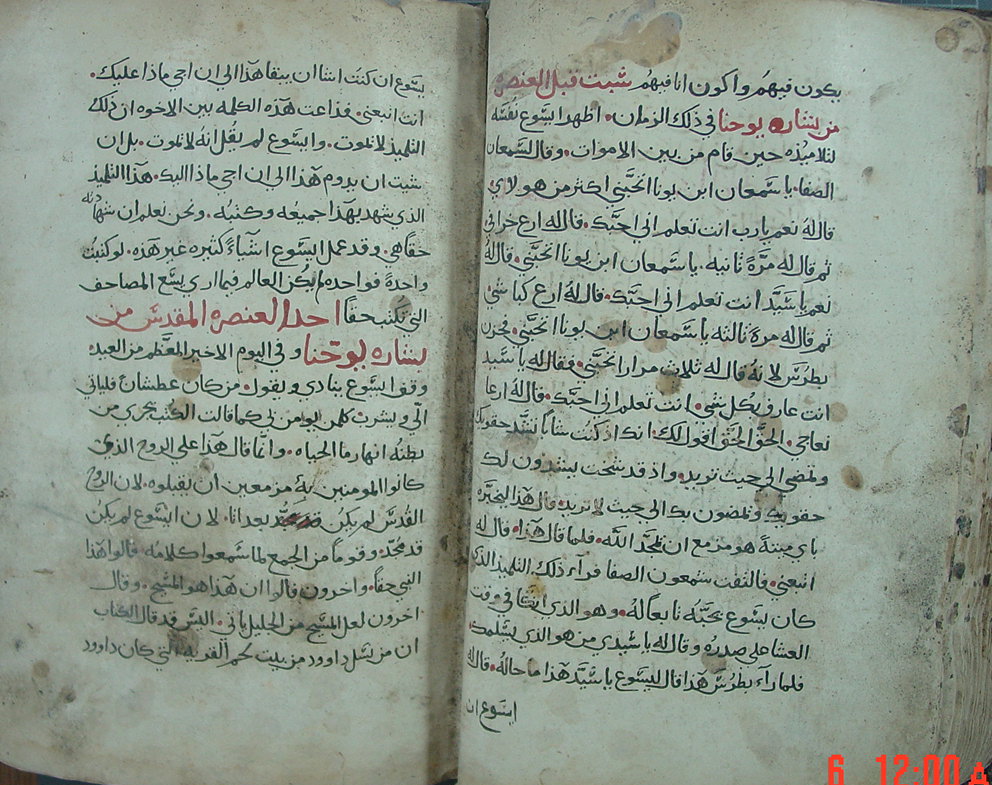 يكون فيهم واكون انا فيهم شبت قبل العنصره
من بشاره يوحنا في ذلك الزمان. اظهر ايسوع نفسه
لتلاميذه حين قام من بين الاموات. وقال لسمعان
الصفا. ياسمعان ابن يونا اتحبني اكثر من هولاي
قال له نعم يارب انت تعلم اني احبك. قال له ارع خرافي
ثم قال له مرةً ثانيه. ياسمعان ابن يونا اتحبني. قال له
نعم ياسيد انت تعلم اني احبك. قال له ارع كباشي
ثم قال له مرة ثالثه ياسمعان ابن يونا اتحبني. فحزن
بطرس لانه قال له ثلاث مرار اتحبني. فقال له ياسيد
انت عارف بكل شي. انت تعلم اني احبك. قال له ارعا
نعاجي. الحق الحق اقول لك. انك اذ كنت شاباً تشد حقويك
وتمضي الى حيث تريد. واذ قد شخت يشدون لك
حقويك وتمضون بك الى حيث لا تريد. قال هذا ليخبره
باي ميتةً هو مزمع ان يمجد الله. فلما قال هذا. قال له
اتبعني. فالتفت سمعون الصفا فرآء ذلك التلميذ الذي
كان يسوع يحبه تابعاً له. وهو الذي اتكا في وقت
العشا على صدره وقال له ياسيدي من هو الذي يسلمك
فلما رآء بطرس هذا قال ليسوع ياسيد هذا ما حاله. قال له
ايسوع ان
يسوع ان كنت اشا ان يبقا هذا الى ان اجي ماذا عليك.
انت اتبعني. فذاعت هذه الكلمه بين الاخوه ان ذلك
التلميذ لا يموت. وايسوع لم يقل انه لا يموت. بل ان
شيت ان يدوم هذا الى ان اجي ماذا اليك. هذا التلميذ
الذي شهد بهذا جميعه وكتبه. ونحن نعلم ان شهادته
حقاً هي. وقد عمل ايسوع اشيآءً كثيره غير هذه. لو كتبت
واحدةً فواحده لم يكن العالم فيما اري يسع المصاحف
التي تكتب حقاً احد العنصره المقدس من
بشاره يوحنا وفي اليوم الاخير المعظم من العيد
وقف ايسوع ينادي ويقول. من كان عطشان فلياتي
الي ويشرب كلمن يومن بي كما قالت الكتب يجري من
بطنه انهار ما الحياه. وانما قال هذا على الروح الذي
كانوا المومنين به مزمعين ان يقبلوه. لان الروح
القدس لم يكن بعد اتا. لان ايسوع لم يكن
قد مجد. وقوماً من الجمع لما سمعوا كلامه قالوا هذا
النبي حقاً. واخرون قالوا ان هذا هو المسيح. وقال
اخرون لعل المسيح من الجليل ياتي. اليس قد قال الكتاب
ان من نسل داوود من بيت لحم القريه التي كان داوود
6 12:00 A